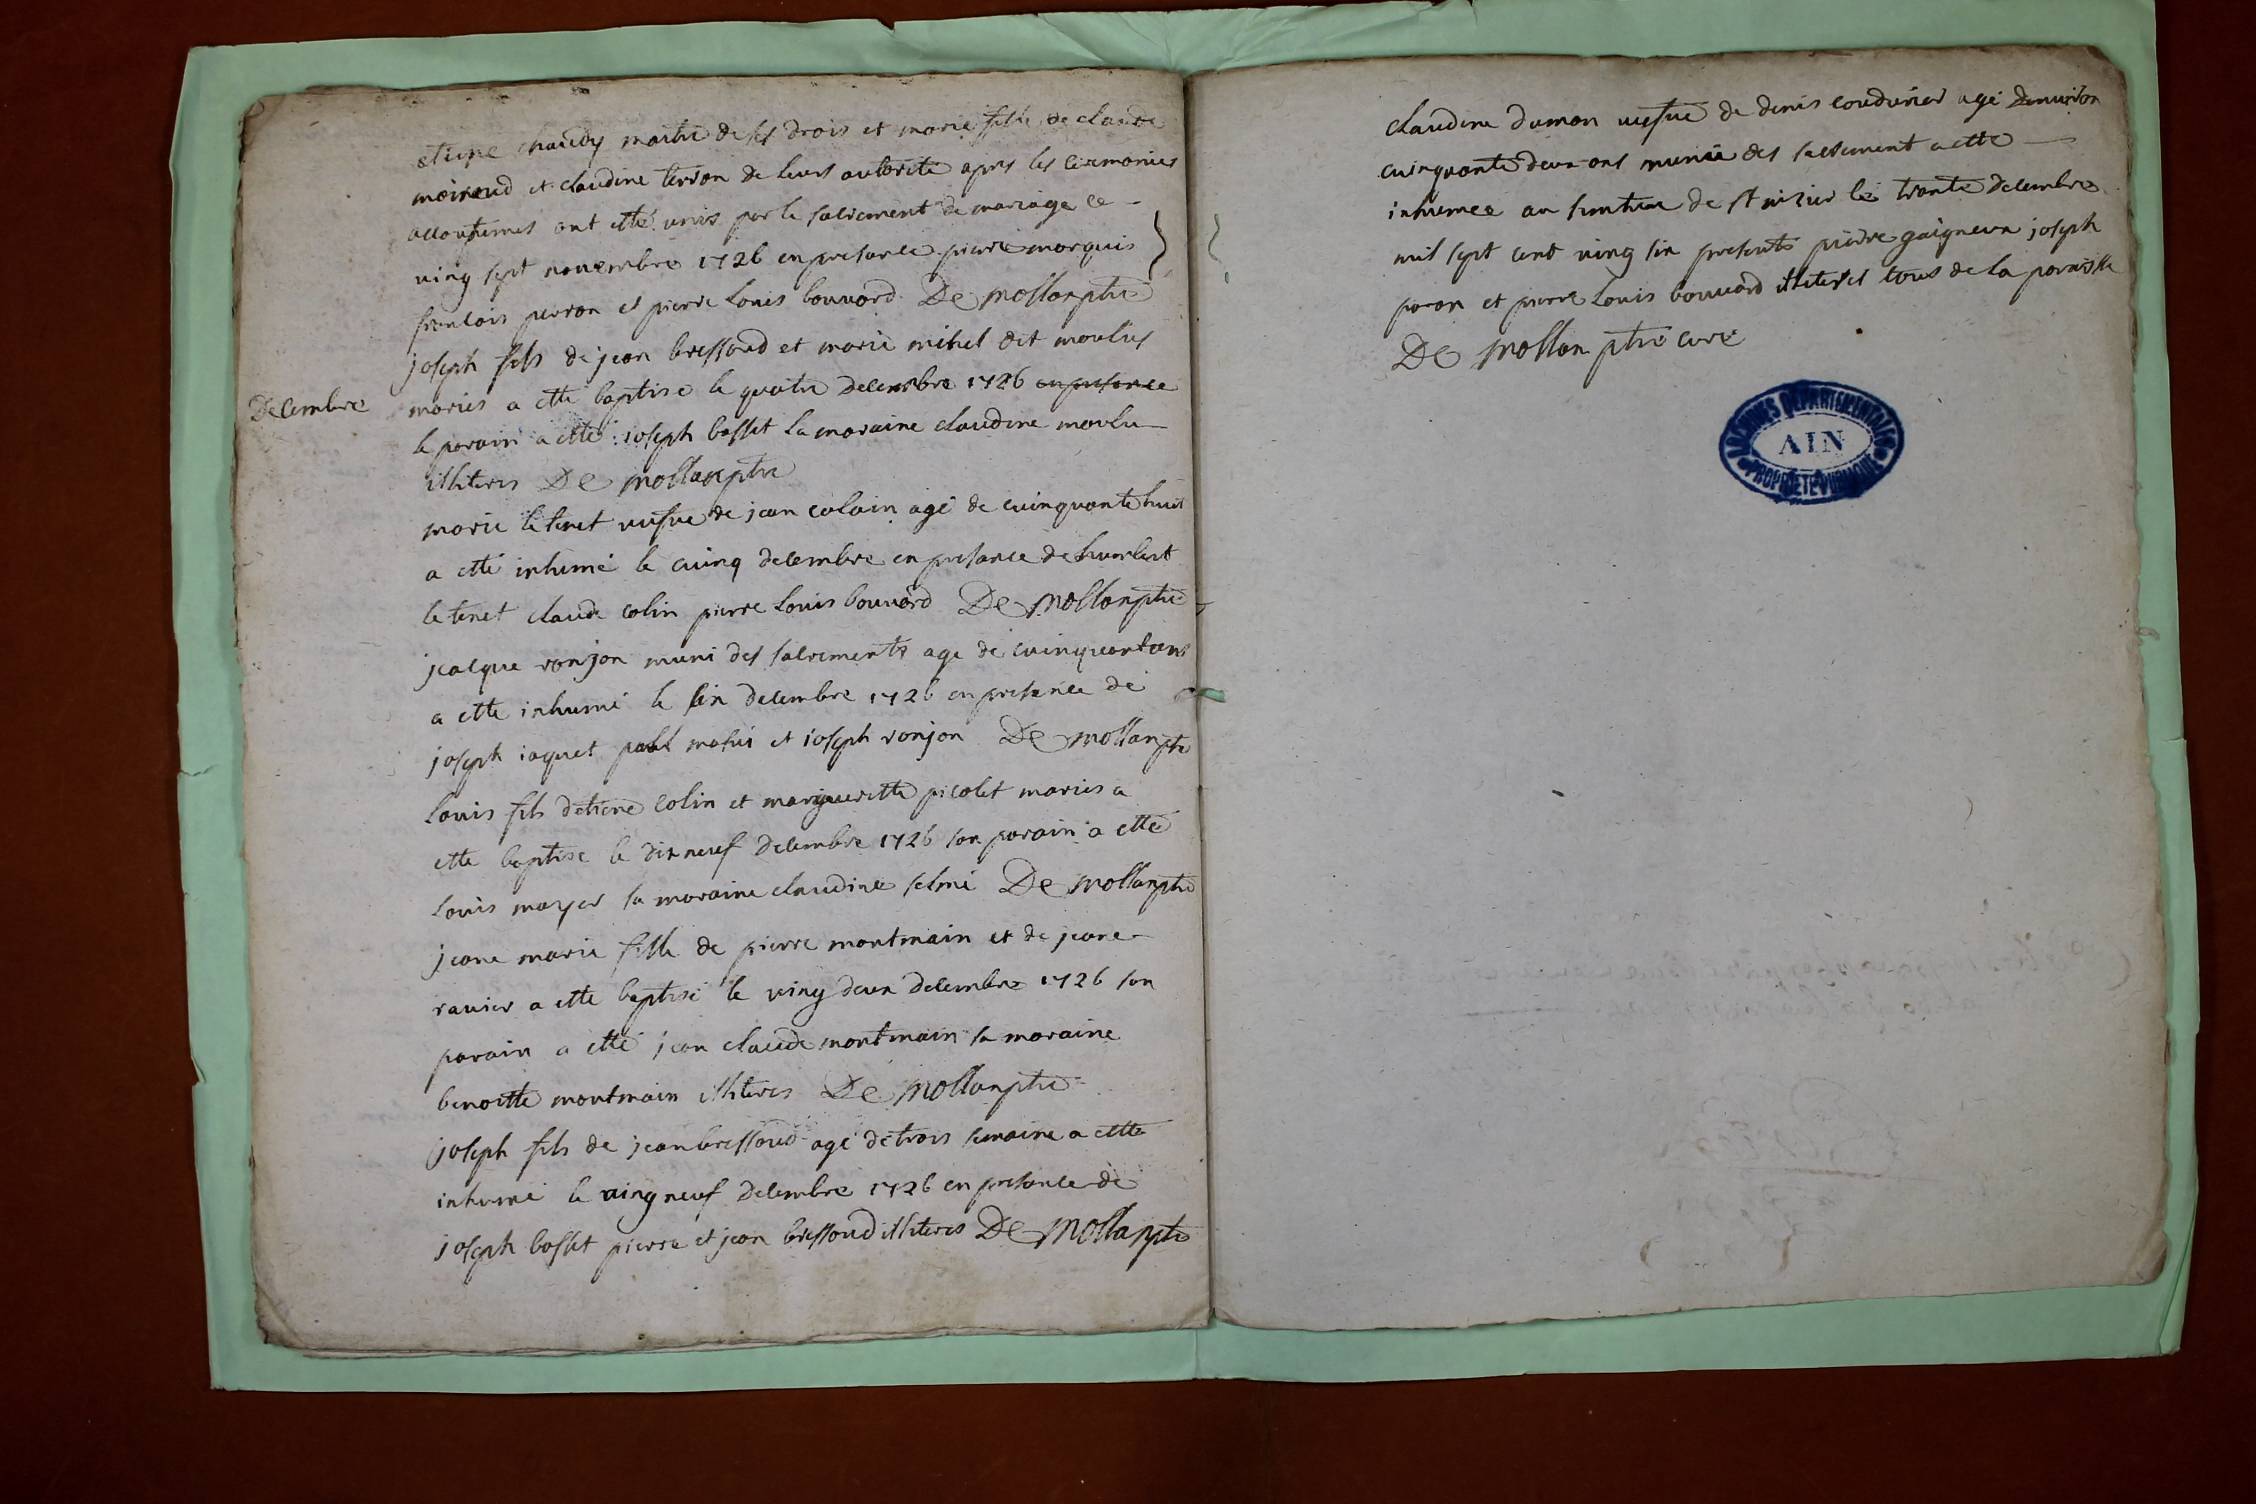 etiene chaudy maitre de ses drois et marie fille de claude
moiraud et claudine terron de leurs autorite apres les ceremonies
accoutumes ont etté unis par le sacrement de mariage ce
ving sept novembre 1726 en presance pierre marquis
francois perron et pierre louis bouvard De mollanptre
joseph fils de jean bressoud et marie mihel dit moulus
Decembre
maries a etté baptise le quatre decembre 1726 en presance
le parain a etté joseph basset la maraine claudine moulu
illiteres De mollanptre
marie le tenet veufve de jean colain agé de cuinquante huit
a etté inhumé le cuinq decembre en presance de humbert
le tenet claude colin pierre louis bouvard De mollanptre
jcalque ronjon muni des sacrements age de cuinquant ans
a etté inhumé le six decembre 1726 en presance de
joseph jaquet et joseph ronjon De mollanptre
louis fils detiene colin et margueritte picolet maries a
etté baptise le dix neuf decembre 1726 son parain a etté
louis mayer sa maraine claudine selmé De mollanptre
jeane marie fille de pierre montmain et de jeane
ravier a etté baptisé le ving deux decembre 1726 son
parain a etté jean claude montmain sa maraine
benoitte montmain illiteres De mollanptre
joseph fils de jean bressoud agé de trois semaine a etté
inhumé le ving neuf decembre 1726 en presance de
joseph basset pierre et jean bressoud illiteres De mollanptre
claudine dumon veufve de denis coudurier agé denviron
cuinquante deux ans munie des sacrement a etté
inhumee au simtiere de st nizier le trante decembre
mil sept cent ving six presents piedre gaigneux joseph
paron et pierre louis bouvard illiteres tous de la paroisse
De mollan ptre curé
ARCHIVES DEPARTEMENTALES
AIN
PROPRIETE PUBLIQUE